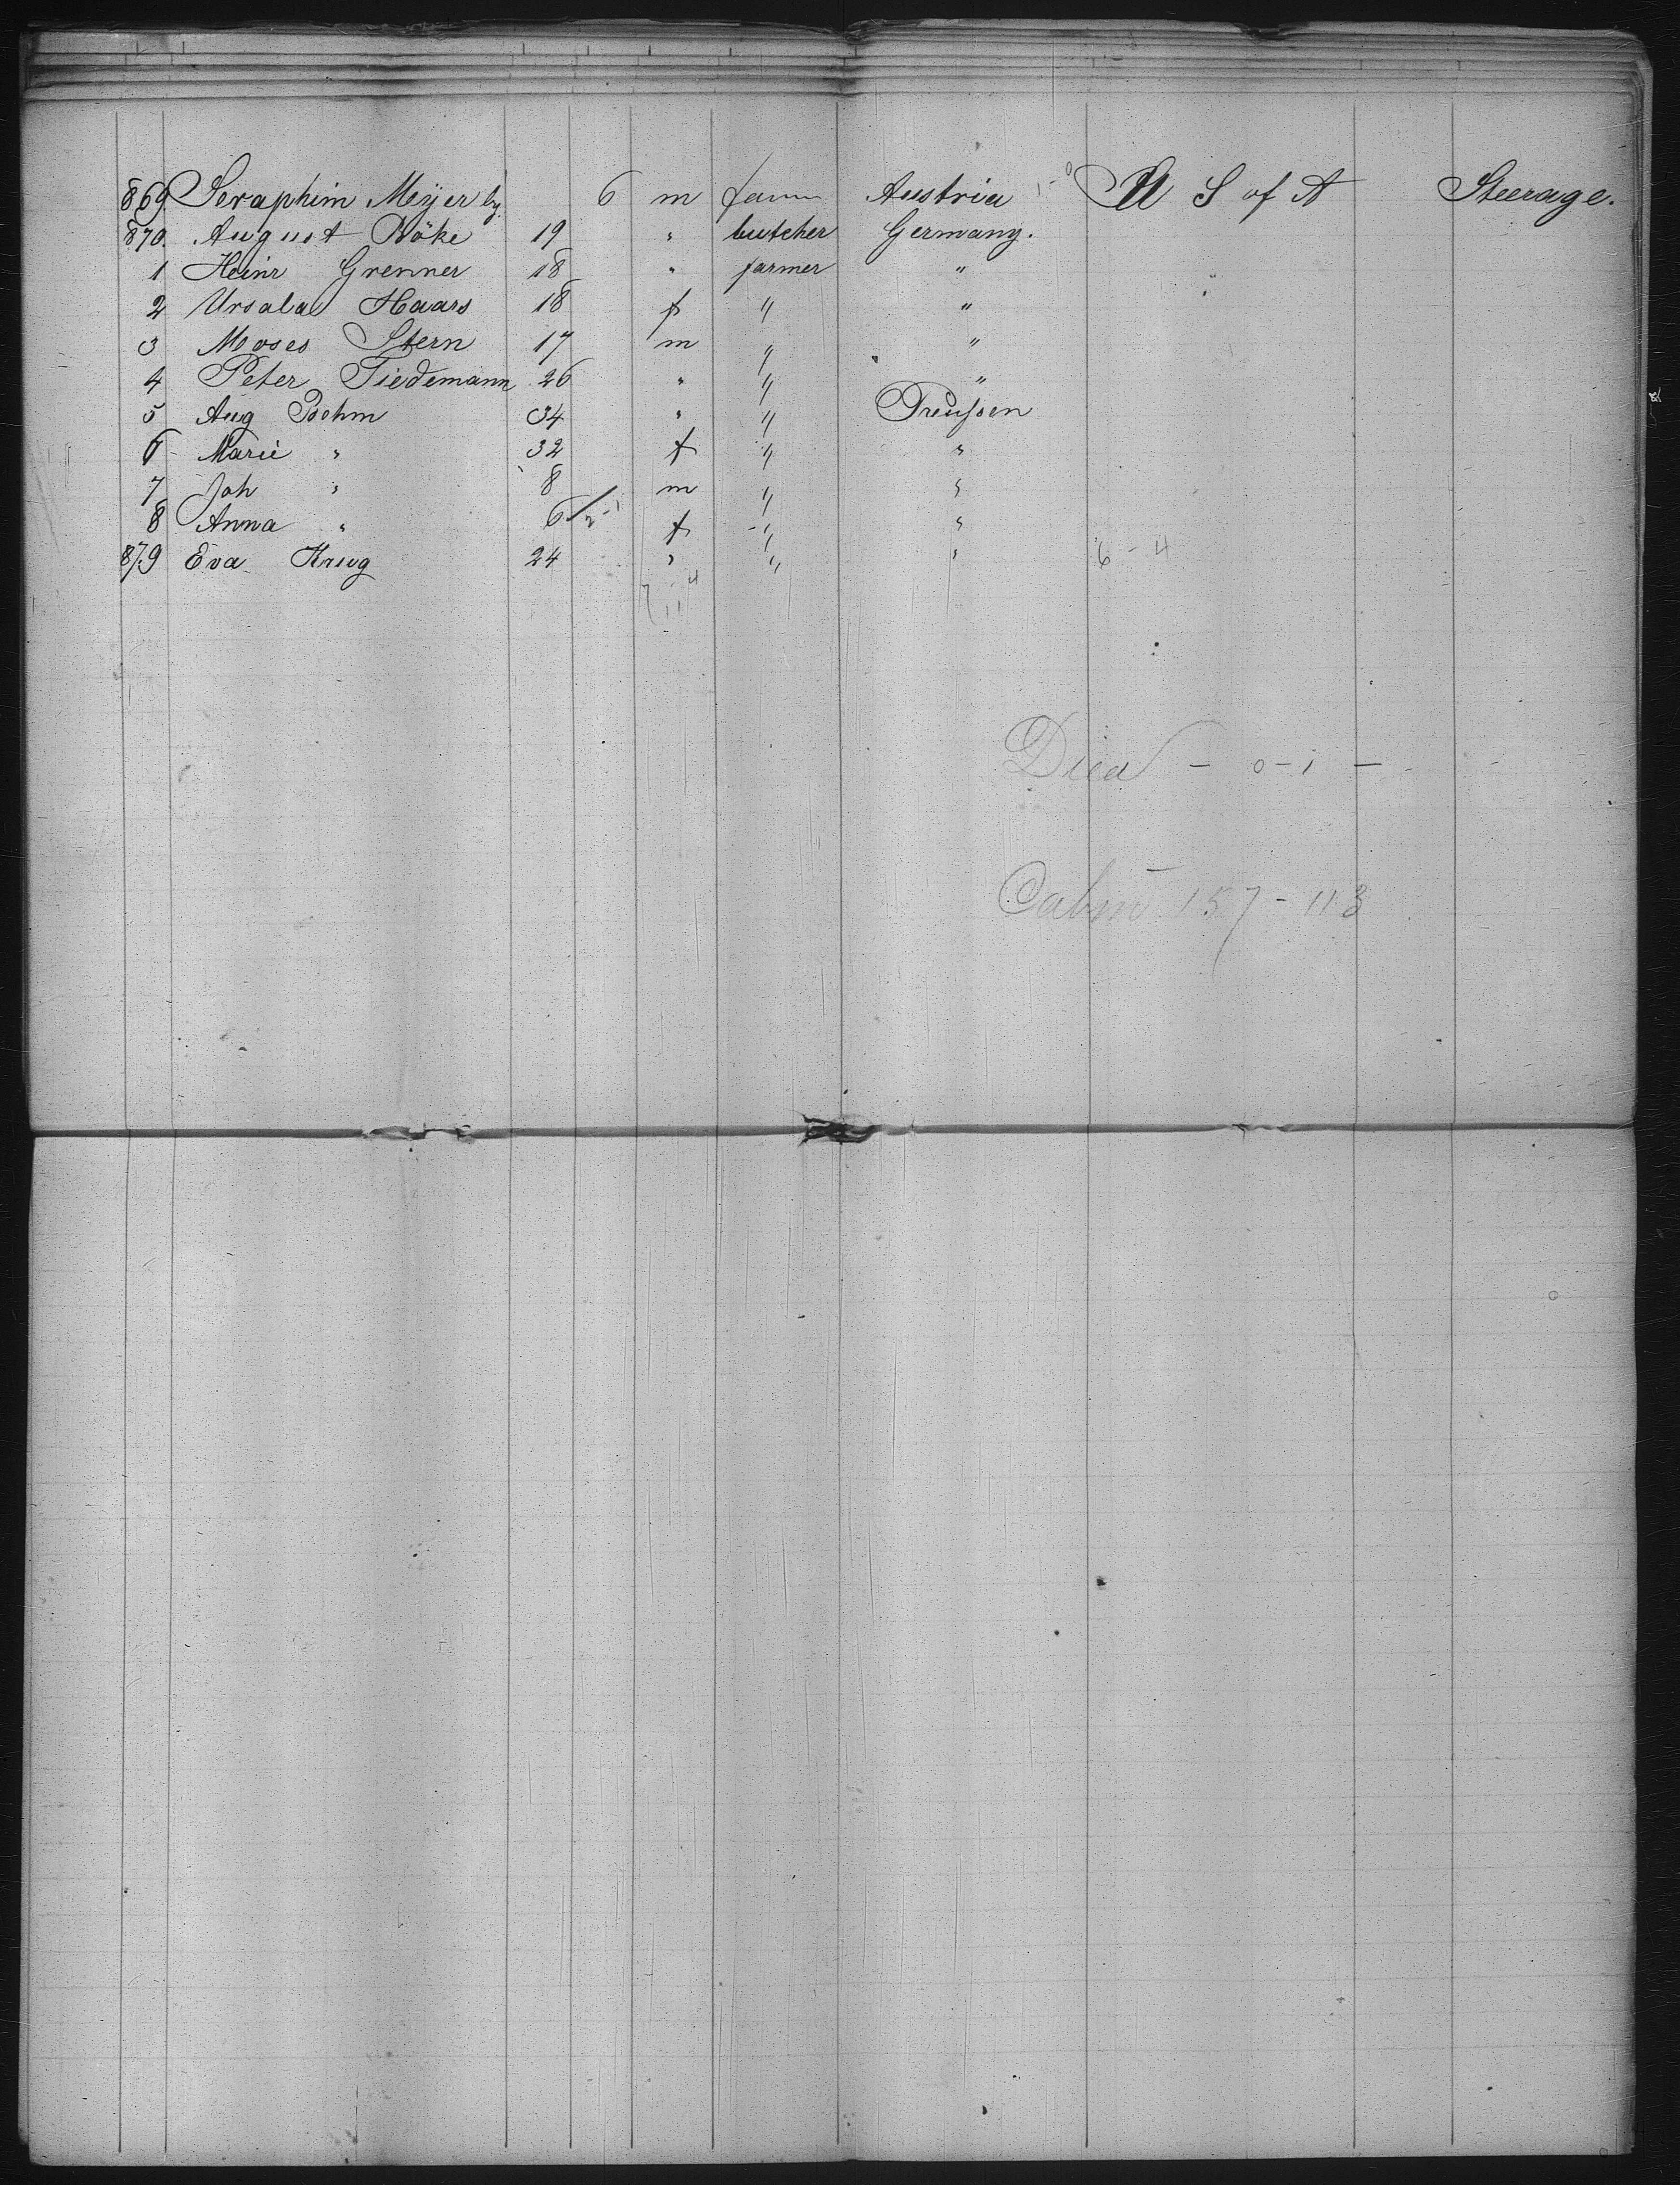 869. Seraphim Meyer by. 6 m farm Austria 1-0 U S of A Steerage.
870. August Böke 19 " butcher Germany.
1 Heinr Grenner 18 " farmer "
2 Ursala Haars 18 f " "
3 Moses Stern 17 m " "
4 Peter Tiedemann 26 " " "
5 Aug Boehm 34 " " Preussen
6 Marie " 32 f " "
7 Joh " 8 m " "
8 Anna " 6 f " "
879 Eva Krug 24 " " " 6-4
7 4
11
Died - 0-1 -
Cabin 157-113